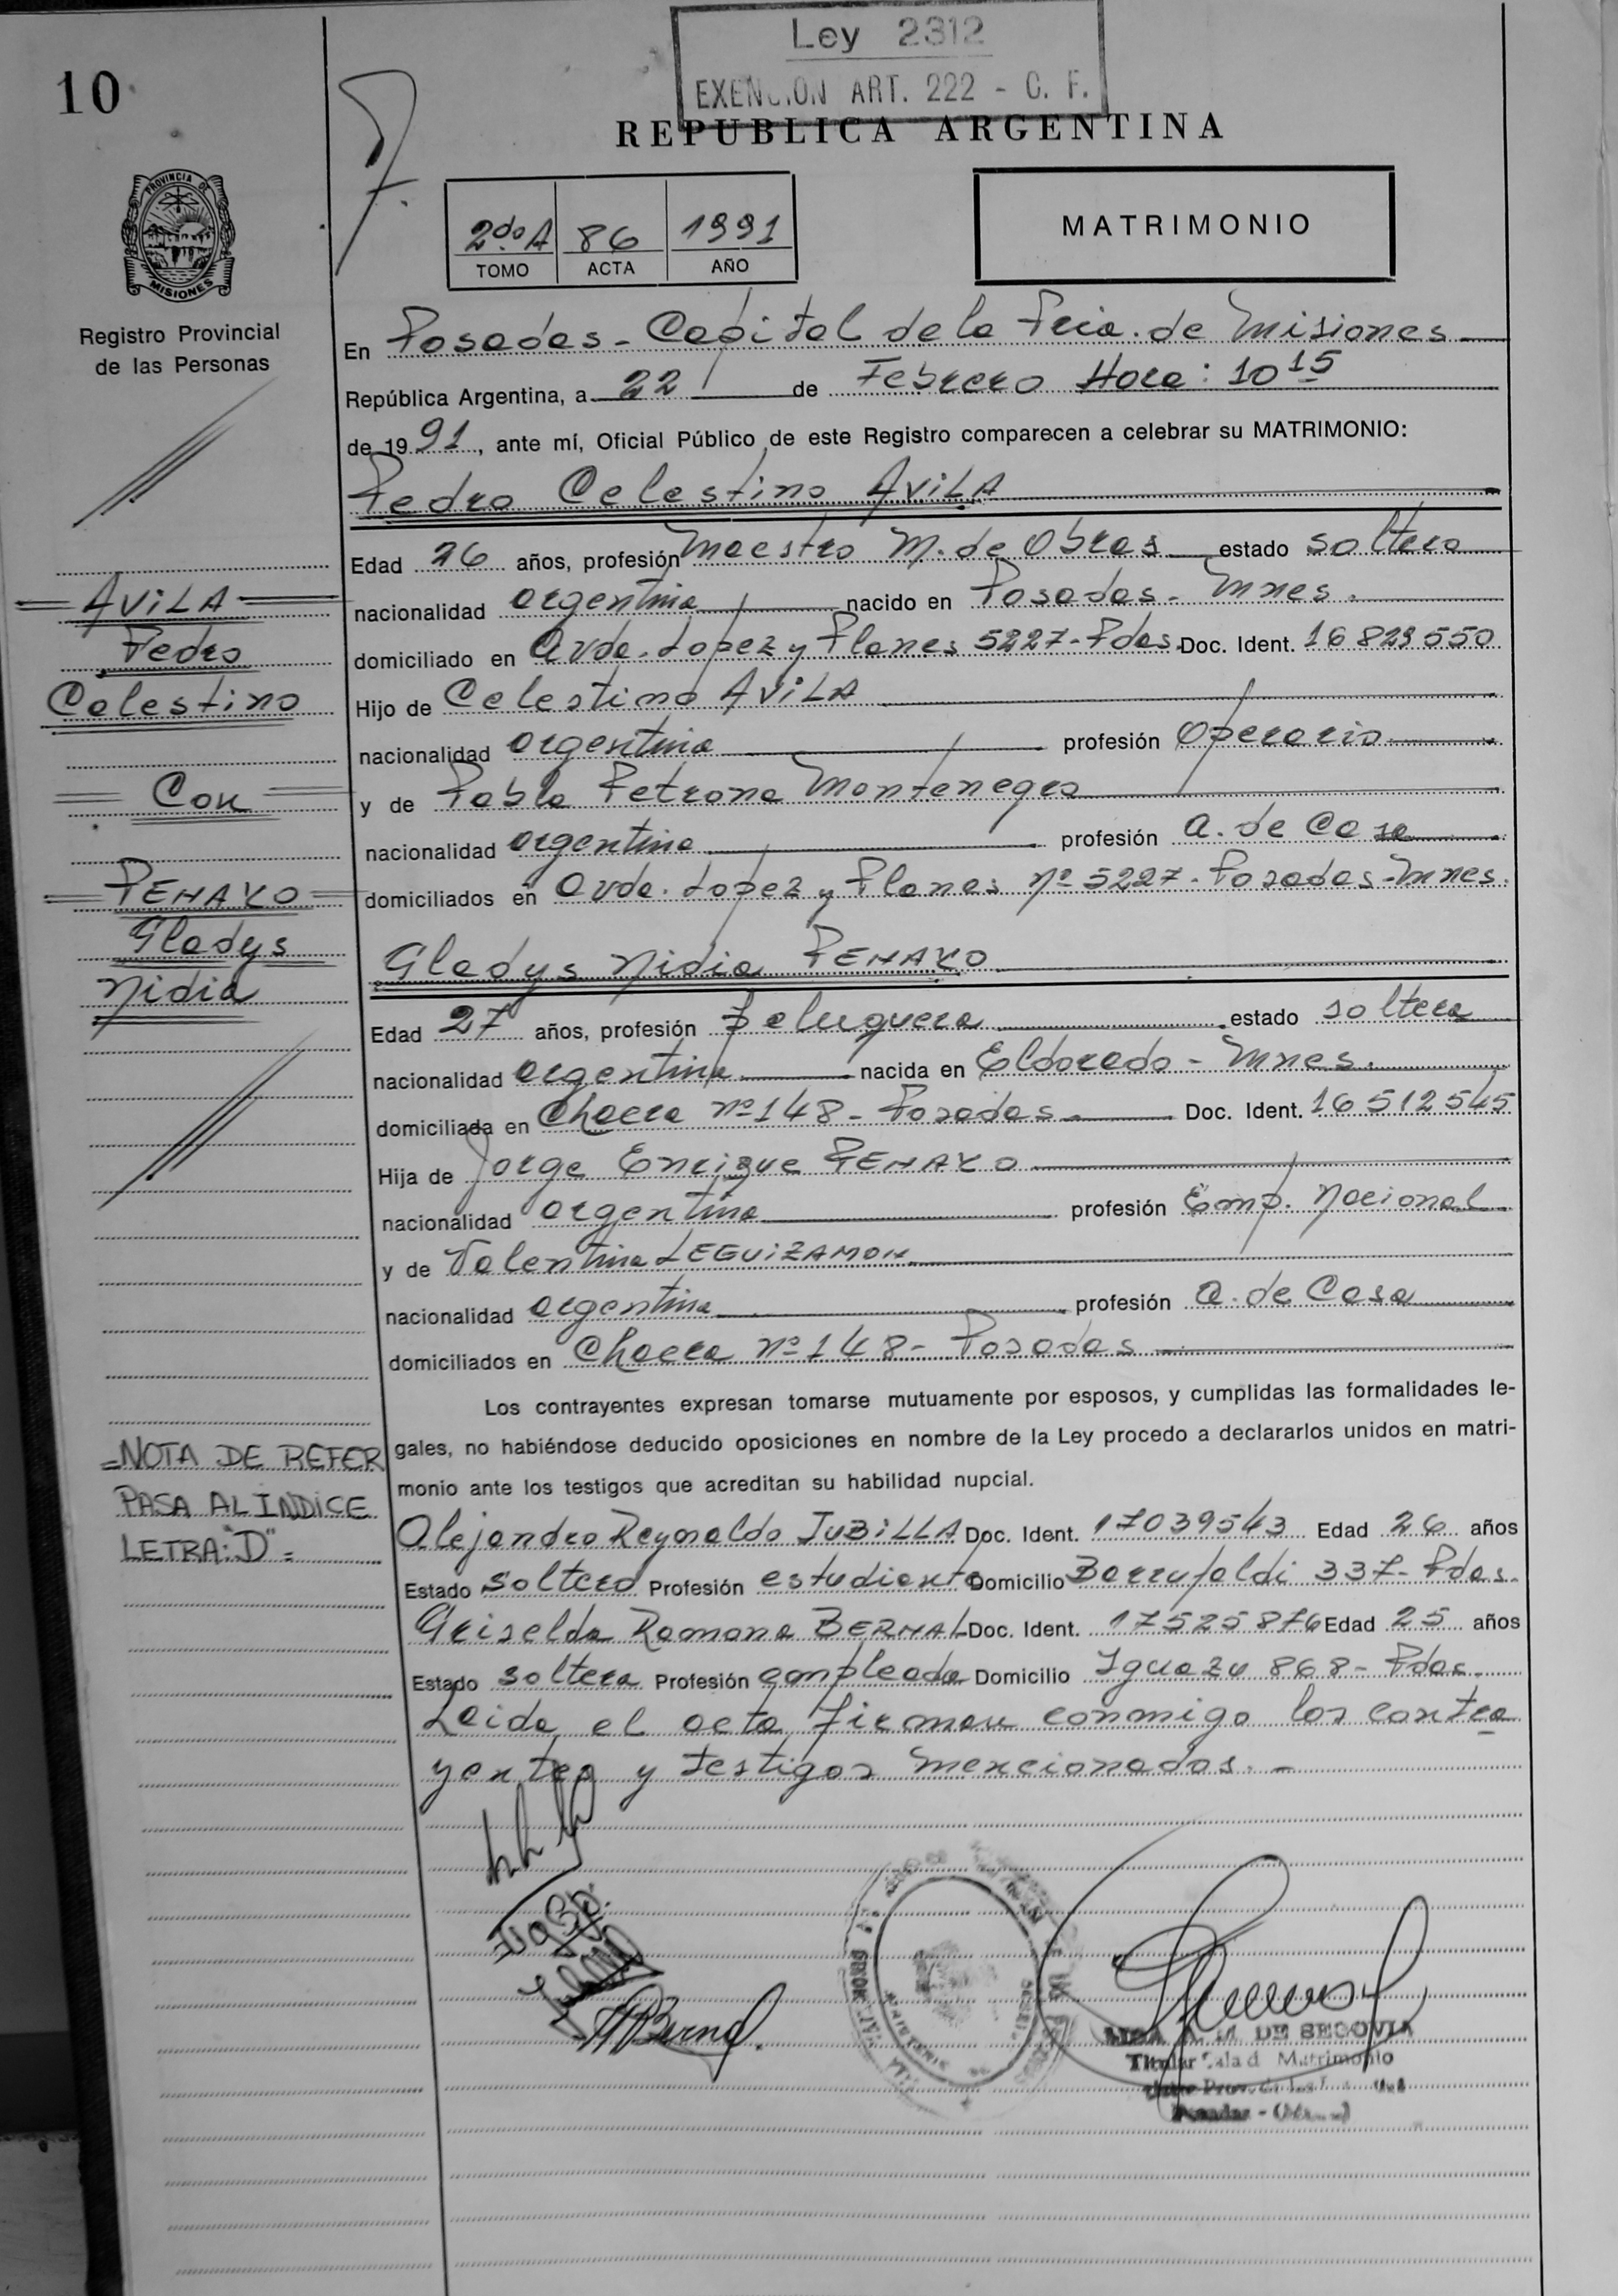 Ley 2312
EXENCION ART. 222 - C. F.
10
REPUBLICA ARGENTINA
PROVINCIA DE
MISIONES
Registro Provincial
de las Personas
2do A 86 1991
TOMO ACTA AÑO
MATRIMONIO
En Posadas - Capital de la Pcia. de Misiones
República Argentina, a 22 de Febrero Hora: 10 15
de 1991, ante mí, Oficial Público de este Registro comparecen a celebrar su MATRIMONIO:
Pedro Celestino AViLA
Edad 26 años, profesión Maestro M. de Obras estado soltero
nacionalidad argentina nacido en Posadas - Mnes.
domiciliado en Avda. Lopez y Planes 5227 - Pdas. Doc. Ident. 16 829 550
Hijo de Celestino AViLA
nacionalidad argentina profesión Operario
y de Pabla Petrona Montenegro
nacionalidad argentina profesión A. de Casa
domiciliados en Avda. Lopez y Planes Nº 5227 - Posadas - Mnes.
Gladys Nidia PENAYO
Edad 27 años, profesión Peluquera estado soltera
nacionalidad argentina nacida en Eldorado - Mnes.
domiciliada en Chacra Nº 148 - Posadas - Doc. Ident. 16 512 545
Hija de Jorge Enrique PENAYO
nacionalidad argentina profesión Emp. Nacional
y de Valentina LEGUiZAMON
nacionalidad argentina profesión A. de Casa
domiciliados en Chacra Nº 148 - Posadas
Los contrayentes expresan tomarse mutuamente por esposos, y cumplidas las formalidades le-
gales, no habiéndose deducido oposiciones en nombre de la Ley procedo a declararlos unidos en matri-
monio ante los testigos que acreditan su habilidad nupcial.
Alejandro Reynaldo JUBiLLA Doc. Ident. 17039543 Edad 26 años
Estado soltero Profesión estudiante Domicilio Barrufaldi 337 - Pdas.
Griselda Ramona BERNAL Doc. Ident. 17525876 Edad 25 años
Estado soltera Profesión empleada Domicilio Iguazu 868 - Pdas.
Leida el acta firman conmigo los contra
yentes y testigos mencionados. -
AViLA
Pedro
Celestino
Con
PENAYO
Gladys
Nidia
=NOTA DE REFER
PASA AL INDICE
LETRA: "D" =
DE SEGOVIA
Titular Sala d Matrimonio
Posadas